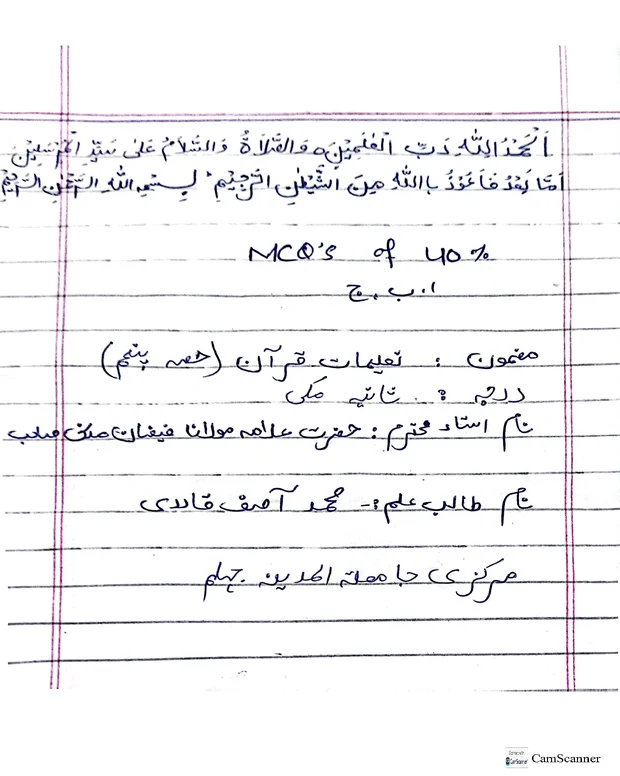 اَلْحَمْدُ لِلّٰهِ رَبِّ الْعٰلَمِیْنَ وَالصَّلَاۃُ وَالسَّلَامُ عَلٰی سَیِّدِ الْمُرْسَلِیْنَ
اَمَّا بَعْدُ فَاَعُوْذُ بِاللّٰهِ مِنَ الشَّیْطٰنِ الرَّجِیْمِ بِسْمِ اللّٰهِ الرَّحْمٰنِ الرَّحِیْمِ
MCQ's of 40%
ا۔ب۔ج
مضمون : تعلیمات قرآن (حصہ پنجم)
درجہ : ثانیہ مکی
نام استاد محترم : حضرت علامہ مولانا فیضان مدنی صاحب
نام طالب علم :- محمد آصف قادری
مرکزی جامعۃ المدینہ جہلم
CamScanner